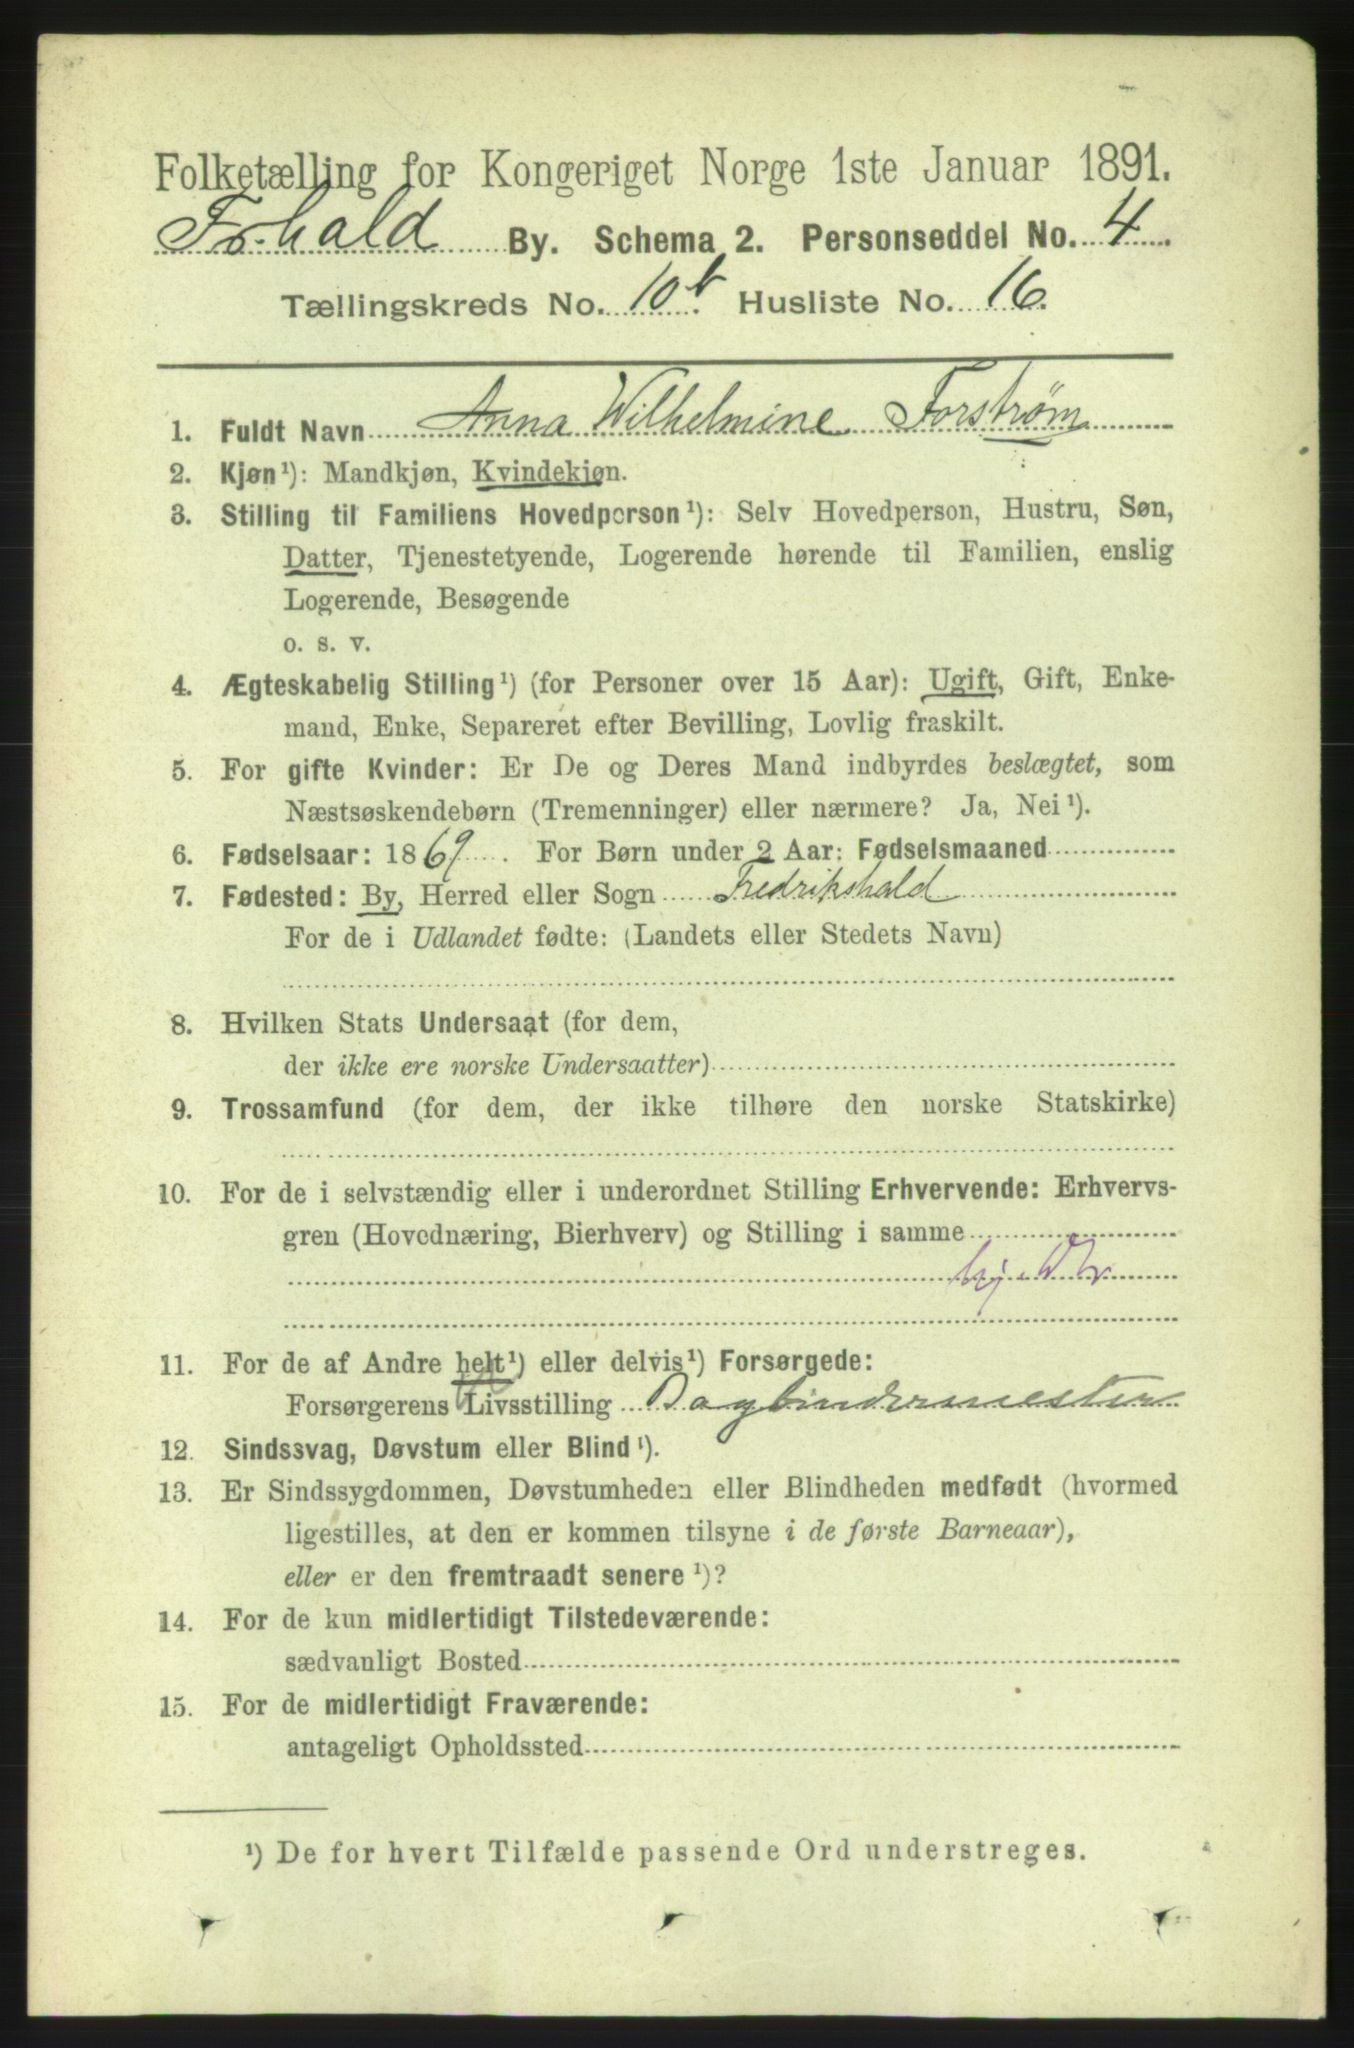 Folketælling for Kongeriget Norge 1ste Januar 1891.
Fr.hald By. Schema 2. Personseddel No. 4.
Tællingskreds No. 10b. Husliste No. 16.
1. Fuldt Navn Anna Wilhelmine Forstrøm
2. Kjøn¹): Mandkjøn, Kvindekjøn.
3. Stilling til Familiens Hovedperson¹): Selv Hovedperson, Hustru, Søn,
Datter, Tjenestetyende, Logerende hørende til Familien, enslig
Logerende, Besøgende
o. s. v.
4. Ægteskabelig Stilling¹) (for Personer over 15 Aar): Ugift, Gift, Enke-
mand, Enke, Separeret efter Bevilling, Lovlig fraskilt.
5. For gifte Kvinder: Er De og Deres Mand indbyrdes beslægtet, som
Næstsøskendebørn (Tremenninger) eller nærmere? Ja, Nei¹).
6. Fødselsaar: 1869. For Børn under 2 Aar: Fødselsmaaned
7. Fødested: By, Herred eller Sogn Fredrikshald
For de i Udlandet fødte: (Landets eller Stedets Navn)
8. Hvilken Stats Undersaat (for dem,
der ikke ere norske Undersaatter)
9. Trossamfund (for dem, der ikke tilhøre den norske Statskirke)
10. For de i selvstændig eller i underordnet Stilling Erhvervende: Erhvervs-
gren (Hovednæring, Bierhverv) og Stilling i samme
11. For de af Andre helt¹) eller delvis¹) Forsørgede:
Forsørgerens Livsstilling Bogbindermester
12. Sindssvag, Døvstum eller Blind¹).
13. Er Sindssygdommen, Døvstumheden eller Blindheden medfødt (hvormed
ligestilles, at den er kommen tilsyne i de første Barneaar),
eller er den fremtraadt senere¹)?
14. For de kun midlertidigt Tilstedeværende:
sædvanligt Bosted
15. For de midlertidigt Fraværende:
antageligt Opholdssted
¹) De for hvert Tilfælde passende Ord understreges.